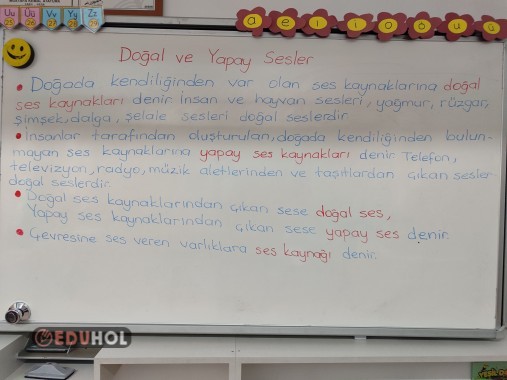 Uu Üü Vv Yy Zz
25 26 27 28 29
a e ı i o ö u ü
Doğal ve Yapay Sesler
• Doğada kendiliğinden var olan ses kaynaklarına doğal
ses kaynakları denir. İnsan ve hayvan sesleri, yağmur, rüzgar,
şimşek, dalga, şelale sesleri doğal seslerdir.
• İnsanlar tarafından oluşturulan, doğada kendiliğinden bulun-
mayan ses kaynaklarına yapay ses kaynakları denir. Telefon,
televizyon, radyo, müzik aletlerinden ve taşıtlardan çıkan sesler
doğal seslerdir.
• Doğal ses kaynaklarından çıkan sese doğal ses,
Yapay ses kaynaklarından çıkan sese yapay ses denir.
• Çevresine ses veren varlıklara ses kaynağı denir.
EDUHOL